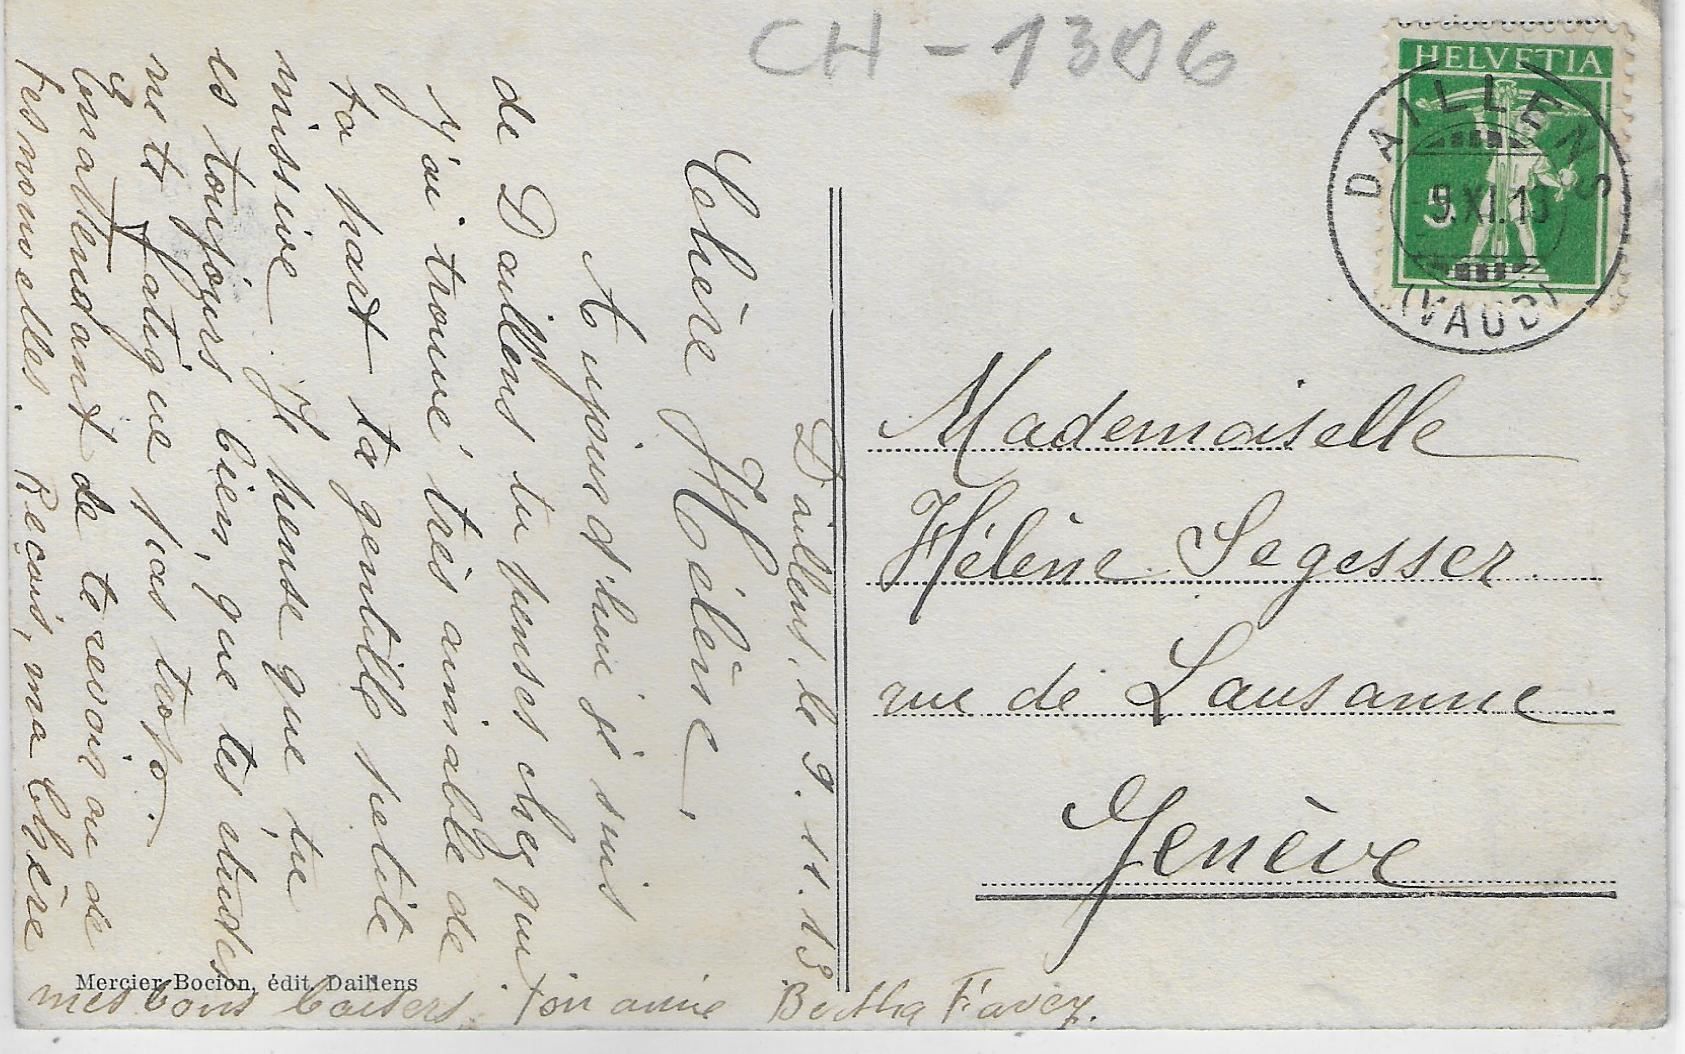 CH-1306
HELVETIA
5
DAILLENS
9.XI.13
(VAUD)
Mademoiselle
Hélène Segesser
rue de Lausanne
Genève
Daillens, le 9.11.13
Chère Hélène,
Aujourd'hui je suis
de Daillens tu penses chez qui
j'ai trouvé très aimable de
ta part ta gentille petite
missive. Je pense que tu
es toujours bien, que tes études
ne te fatigue pas trop.
En attendant de te revoir ou de
tes nouvelles. Reçois, ma Chère
mes bons baisers. Ton amie Bertha Favez.
Mercier-Bocion, édit. Daillens